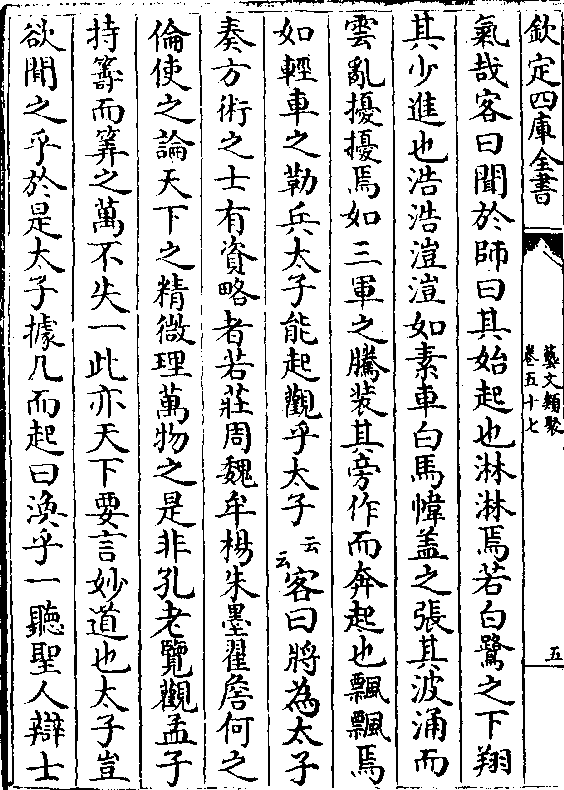 欽定四庫全書
藝文類聚
卷五十七
五
氣哉客曰聞於師曰其始起也淋淋焉若白鷺之下翔
其少進也浩浩溰溰如素車白馬幃盖之張其波涌而
雲亂擾擾焉如三軍之騰装其旁作而奔起也飄飄焉
如輕車之勒兵太子能起觀乎太子云云客曰將為太子
奏方術之士有資略者若莊周魏牟楊朱墨翟詹何之
倫使之論天下之精微理萬物之是非孔老覽觀孟子
持籌而筭之萬不失一此亦天下要言妙道也太子豈
欲聞之乎於是太子據几而起曰渙乎一聽聖人辯士